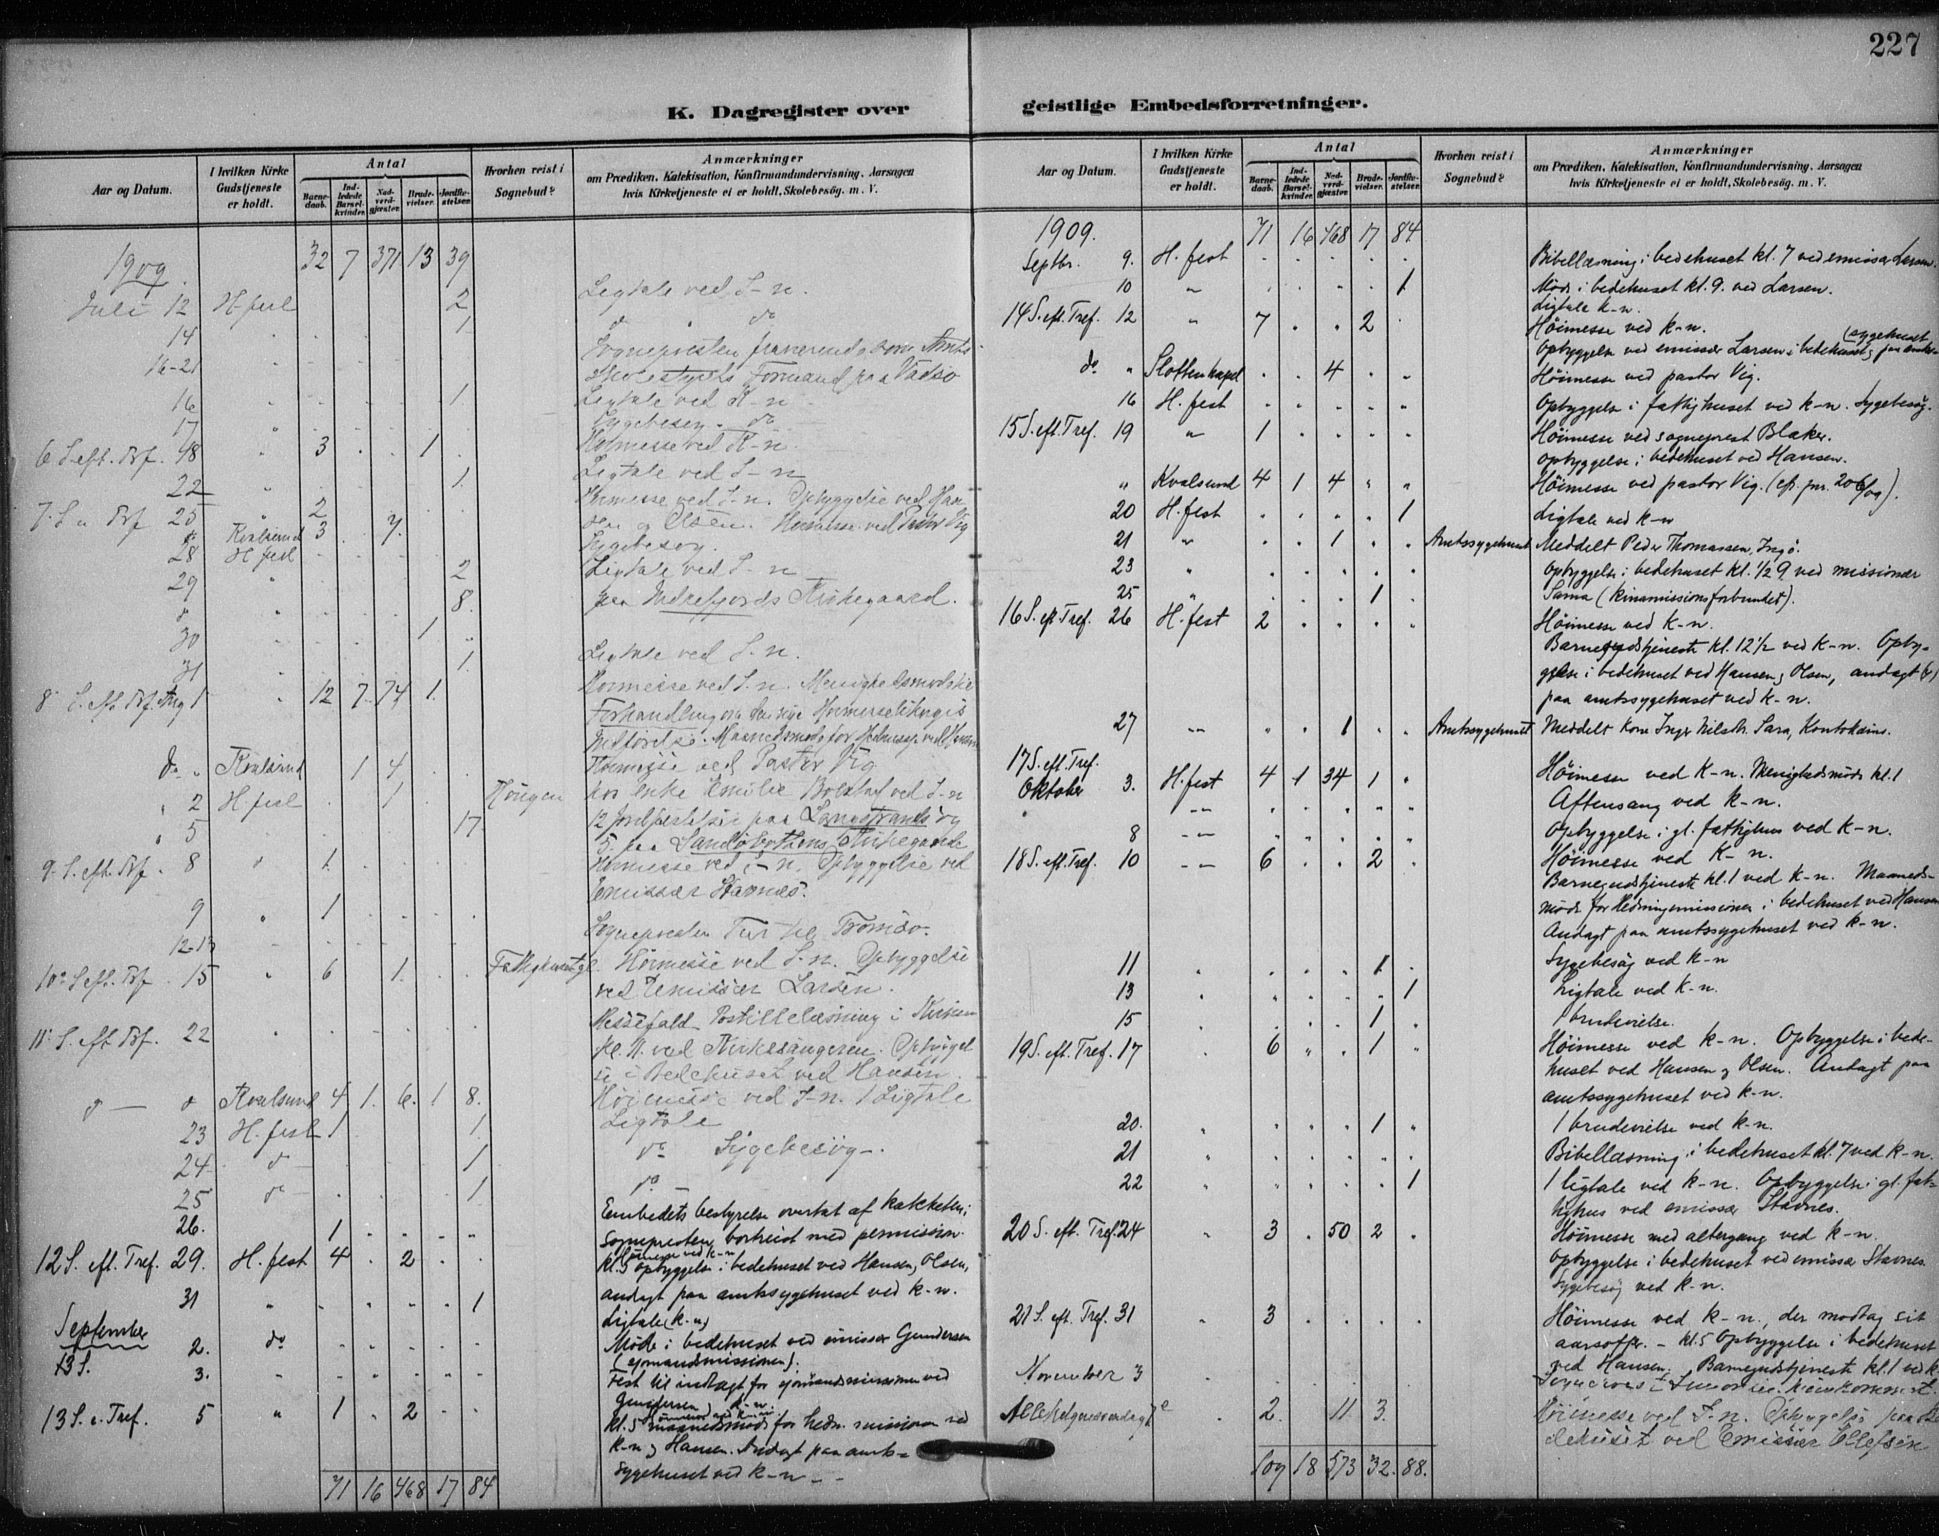 227
K. Dagregister over geistlige Embedsforretninger.
Aar og Datum.
I hvilken Kirke Gudstjeneste er holdt.
Antal
Barnedaab.
Indledede Barselkvinder.
Nadverdgjæster.
Brudevielser.
Jordfæstelser.
Hvorhen reist i Sognebud?
Anmærkninger
om Prædiken, Katekisation, Konfirmandundervisning, Aarsagen
hvis Kirketjeneste ei er holdt, Skolebesøg. m. V.
1909. 32 7 371 13 39
Juli 12 H.fest 2 Ligtale ved S-n.
14 1 do do
16-21 Sognepresten fraværende som Amts-
skolestyrets Formand paa Vadsø
16 1 Ligtale ved K-n
17 Sygebesøg. do
6 S. eft. Trf. 18 3 1 Høimesse ved K-n.
22 1 Ligtale ved S-n
7 S. e Trf 25 2 Høimesse ved S-n. Opbyggelse ved Han-
" Kvalsund 3 7. sen og Olsen. Høimesse ved Pastor Vig
28 H fest Sygebesøg.
29 2 Ligtale ved S-n
do 8. paa Indrefjords Kirkegaard.
30 1
31 1. Ligtale ved S.n.
8 S. eft Trf. Aug 1 12 7 74 1. Høimesse ved S.n. Menighedsmøde
Forhandling om
Maanedsmøde for Hedn.
do " Kvalsund 1 4 Høimesse ved Pastor Vig
" 2 H fest 1 hos enke Emilie ved S-n
" 5 17 12 jordfæstelser paa Langstrands og
5 paa Sandøbotnens Kirkegaarde
9. S. eft. Trf. 8 1. Høimesse ved S-n. Opbyggelse ved
Emissær Stavnes.
9 1
12-13 Sognepresten Tur til Tromsø.
10 S eft. Trf. 15 6 1. Fattighuset gl. Høimesse ved S.n. Opbyggelse
ved Emissær Larsen.
11 S. eft Trf. 22 Messefald Postillelæsning i Kirken
kl. 11 ved Kirkesangeren. Opbyggel-
se i Bedehuset ved Hansen.
do do Kvalsund 4 1. 6. 1 8. Høimesse ved S-n. 1 Ligtale
23 H. fest 1 1. Ligtale
24 do 1 do Sygebesøg.
25 do 1 do
26. 1 Embedets bestyrelse overtat af kateketen;
sognepresten bortreist med permission.
12 S. eft. Tref. 29. H. fest 4 2 Høimesse ved k-n
kl. 5 opbyggelse i bedehuset ved Hansen, Olsen,
andagt paa amtssygehuset ved k-n.
31 1 Ligtale (k-n)
September 2. do Møde i bedehuset ved emissær Gundersen
(sjømandsmissionen).
13 S. 3. Fest til indtægt for sjømandsmissionen ved
Gundersen, k-n.
13 S. e. Tref. 5 1 2 Høimesse ved k-n
kl. 5 maanedsmøde for hedn. missionen ved
k-n og Hansen. Andagt paa amts-
sygehuset ved k-n
71 16 468 17 84
Aar og Datum.
I hvilken Kirke Gudstjeneste er holdt.
Antal
Barnedaab.
Indledede Barselkvinder.
Nadverdgjæster.
Brudevielser.
Jordfæstelser.
Hvorhen reist i Sognebud?
Anmærkninger
om Prædiken, Katekisation, Konfirmandundervisning, Aarsagen
hvis Kirketjeneste ei er holdt, Skolebesøg. m. V.
1909. 71 16 468 17 84
Septbr. 9. H. fest Bibellæsning i bedehuset kl. 7 ved emissær Larsen.
10 " 1 Møde i bedehuset kl. 9. ved Larsen.
Ligtale k-n.
14 S. eft. Tref. 12 " 7 2 Høimesse ved k-n. (sygehuset
Opbyggelse ved emissær Larsen i bedehuset og paa amts-
do " Slotten kapel 4 Høimesse ved pastor Vig.
16 H. fest Opbyggelse i fattighuset ved k-n. Sygebesøg.
15 S. eft. Tref. 19 " 1 Høimesse ved sogneprest Blaker.
Opbyggelse i bedehuset ved Hansen.
" Kvalsund 4 1 4 Høimesse ved pastor Vig. (cfr. jnr. 206/09).
20 H. fest 1 Ligtale ved k-n
21 " 1 Amtssygehuset Meddelt Peder Thomassen, Ingø.
23 " Opbyggelse i bedehuset kl. 1/2 9 ved missionær
25 " 1 Sama (kinamissionsforbundet).
16 S. eft Tref. 26 H. fest 2 Høimesse ved k-n.
Barnegudstjeneste kl. 12 1/2 ved k-n. Opby-
gelse i bedehuset ved Hansen og Olsen, andagt
paa amtssygehuset ved k-n.
27 " 1 Amtssygehuset Meddelt kone Inger Nilsdtr. Sara, Kautokeino.
17 S. eft. Tref.
Oktober 3. H. fest 4 1 34 1 Høimesse ved k-n. Menighedsmøde kl. 1
" Aftensang ved k-n.
8 " Opbyggelse i gl. fattighus ved k-n.
18 S. eft. Tref. 10 " 6 2 Høimesse ved k-n.
Barnegudstjeneste kl. 1 ved k-n. Maaneds-
møde for Hedningemissionen i bedehuset ved Hansen
Andagt paa amtssygehuset ved k-n.
11 1 Sygebesøg ved k-n
13 1 Ligtale ved k-n.
15 1 1 brudevielse.
19 S. eft. Tref. 17 6 1 Høimesse ved k-n. Opbyggelse i bede-
huset ved Hansen og Olsen. Andagt paa
amtssygehuset ved k-n.
20. 1 1 brudevielse ved k-n.
21 Bibellæsning i bedehuset kl. 7 ved k-n.
22 1 1 ligtale ved k-n. Opbyggelse i gl. fat-
tighus ved emissær Stavnes.
20 S. eft. Tref. 24 3 50 2 Høimesse med altergang ved k-n.
Opbyggelse i bedehuset ved emissær Stavnes.
Sygebesøg ved k-n.
21 S. eft. Tref. 31 3 Høimesse ved k-n., der modtog sit
aarsoffer. - kl. 5 Opbyggelse i bedehuset
ved Hansen. Barnegudstjeneste kl. 1 ved k
November 3 Sogneprest hjemkommet.
Allehelgensøndag 7 2. 11 3. Høimesse ved S-n. Opbyggelse paa Be-
dehuset ved Emissær Ellefsen
109 18 573 32. 88.